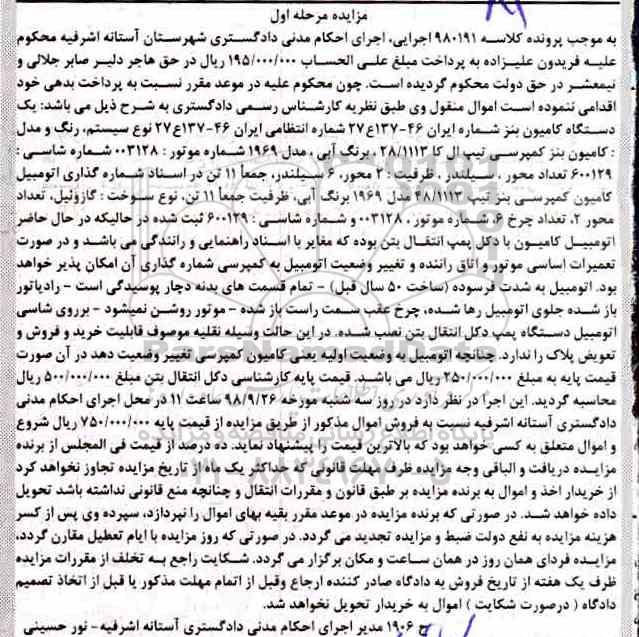 مزایده مرحله اول
به موجب پرونده کلاسه ۹۸۰۱۹۱ اجرایی، اجرای احکام مدنی دادگستری شهرستان آستانه اشرفیه محکوم
علیه فریدون علیزاده به پرداخت مبلغ علی الحساب ۱۹۵/۰۰۰/۰۰۰ ریال در حق هاجر دلیر صابر جلالی و
نیمعشر در حق دولت محکوم گردیده است. چون محکوم علیه در موعد مقرر نسبت به پرداخت بدهی خود
اقدامی ننموده است اموال منقول وی طبق نظریه کارشناس رسمی دادگستری به شرح ذیل می باشد: یک
دستگاه کامیون بنز شماره ایران ۴۶-۱۳۷ع۲۷ شماره انتظامی ایران ۴۶-۱۳۷ع۲۷ نوع سیستم، رنگ و مدل
: کامیون بنز کمپرسی تیپ ال کا ۲۸/۱۱۱۳ ، برنگ آبی ، مدل ۱۹۶۹ شماره موتور : ۰۰۳۱۲۸ شماره شاسی :
۶۰۰۱۲۹ تعداد محور ، سیلندر ، ظرفیت : ۲ محور، ۶ سیلندر، جمعاً ۱۱ تن در اسناد شماره گذاری اتومبیل
کامیون کمپرسی بنز تیپ ۴۸/۱۱۱۳ مدل ۱۹۶۹ برنگ آبی، ظرفیت جمعاً ۱۱ تن، نوع سوخت : گازوئیل، تعداد
محور ۲، تعداد چرخ ۶، شماره موتور ، ۰۰۳۱۲۸ و شماره شاسی : ۶۰۰۱۲۹ ثبت شده در حالیکه در حال حاضر
اتومبیل کامیون با دکل پمپ انتقال بتن بوده که مغایر با اسناد راهنمایی و رانندگی می باشد و در صورت
تعمیرات اساسی موتور و اتاق راننده و تغییر وضعیت اتومبیل به کمپرسی شماره گذاری آن امکان پذیر خواهد
بود. اتومبیل به شدت فرسوده (ساخت ۵۰ سال قبل) - تمام قسمت های بدنه دچار پوسیدگی است - رادیاتور
باز شده جلوی اتومبیل رها شده، چرخ عقب سمت راست باز شده - موتور روشن نمیشود - برروی شاسی
اتومبیل دستگاه پمپ دکل انتقال بتن نصب شده. در این حالت وسیله نقلیه موصوف قابلیت خرید و فروش و
تعویض پلاک را ندارد. چنانچه اتومبیل به وضعیت اولیه یعنی کامیون کمپرسی تغییر وضعیت دهد در آن صورت
قیمت پایه به مبلغ ۲۵۰/۰۰۰/۰۰۰ ریال می باشد. قیمت پایه کارشناسی دکل انتقال بتن مبلغ ۵۰۰/۰۰۰/۰۰۰ ریال
محاسبه گردید. این اجرا در نظر دارد در روز سه شنبه مورخه ۹۸/۹/۲۶ ساعت ۱۱ در محل اجرای احکام مدنی
دادگستری آستانه اشرفیه نسبت به فروش اموال مذکور از طریق مزایده از قیمت پایه ۷۵۰/۰۰۰/۰۰۰ ریال شروع
و اموال متعلق به کسی خواهد بود که بالاترین قیمت را پیشنهاد نماید. ده درصد از قیمت فی المجلس از برنده
مزایده دریافت و الباقی وجه مزایده ظرف مهلت قانونی که حداکثر یک ماه از تاریخ مزایده تجاوز نخواهد کرد
از خریدار اخذ و اموال به برنده مزایده بر طبق قانون و مقررات انتقال و چنانچه منع قانونی نداشته باشد تحویل
داده خواهد شد. در صورتی که برنده مزایده در موعد مقرر بقیه بهای اموال را نپردازد، سپرده وی پس از کسر
هزینه مزایده به نفع دولت ضبط و مزایده تجدید می گردد. در صورتی که روز مزایده با ایام تعطیل مقارن گردد،
مزایده فردای همان روز در همان ساعت و مکان برگزار می گردد. شکایت راجع به تخلف از مقررات مزایده
ظرف یک هفته از تاریخ فروش به دادگاه صادر کننده ارجاع وقبل از اتمام مهلت مذکور یا قبل از اتخاذ تصمیم
دادگاه ( درصورت شکایت ) اموال به خریدار تحویل نخواهد شد.
ح ۱۹۰۶ مدیر اجرای احکام مدنی دادگستری آستانه اشرفیه- نور حسینی